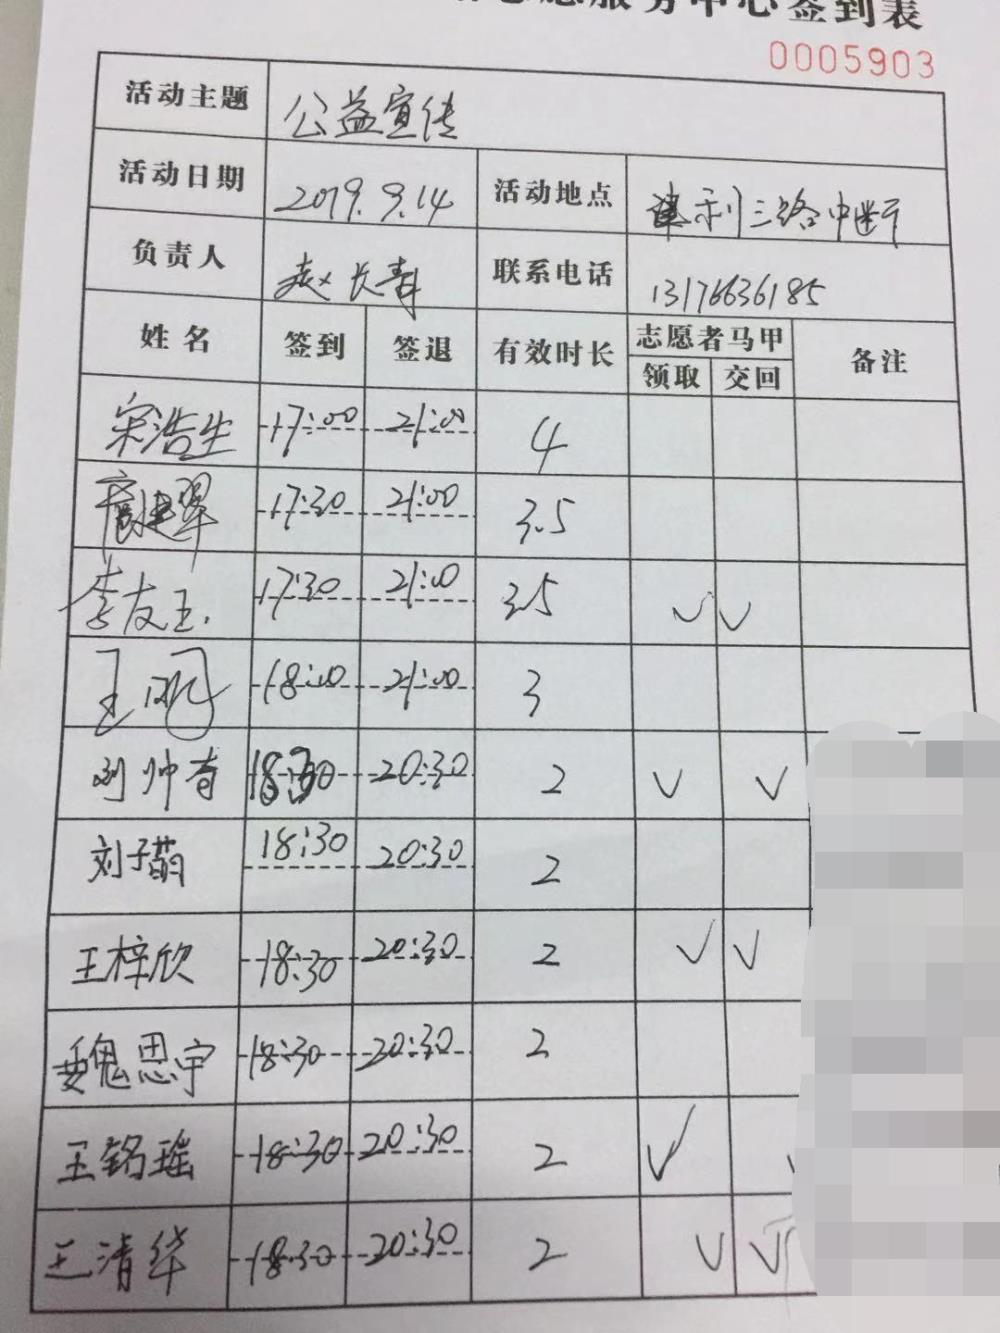 服务中心签到表
0005903
活动主题 公益宣传
活动日期 2019.9.14 活动地点 利三路中
负责人 赵长青 联系电话 13176636185
姓名 签到 签退 有效时长 志愿者马甲 备注
领取 交回
宋浩生 17:00 21:00 4
17:30 21:00 3.5
李友玉 17:30 21:00 3.5 √ √
王鹏 18:00 21:00 3
刘帅奇 18:30 20:30 2 √ √
刘子萌 18:30 20:30 2
王梓欣 18:30 20:30 2 √ √
魏思宇 18:30 20:30 2
王铭瑶 18:30 20:30 2 √
王清华 18:30 20:30 2 √ √